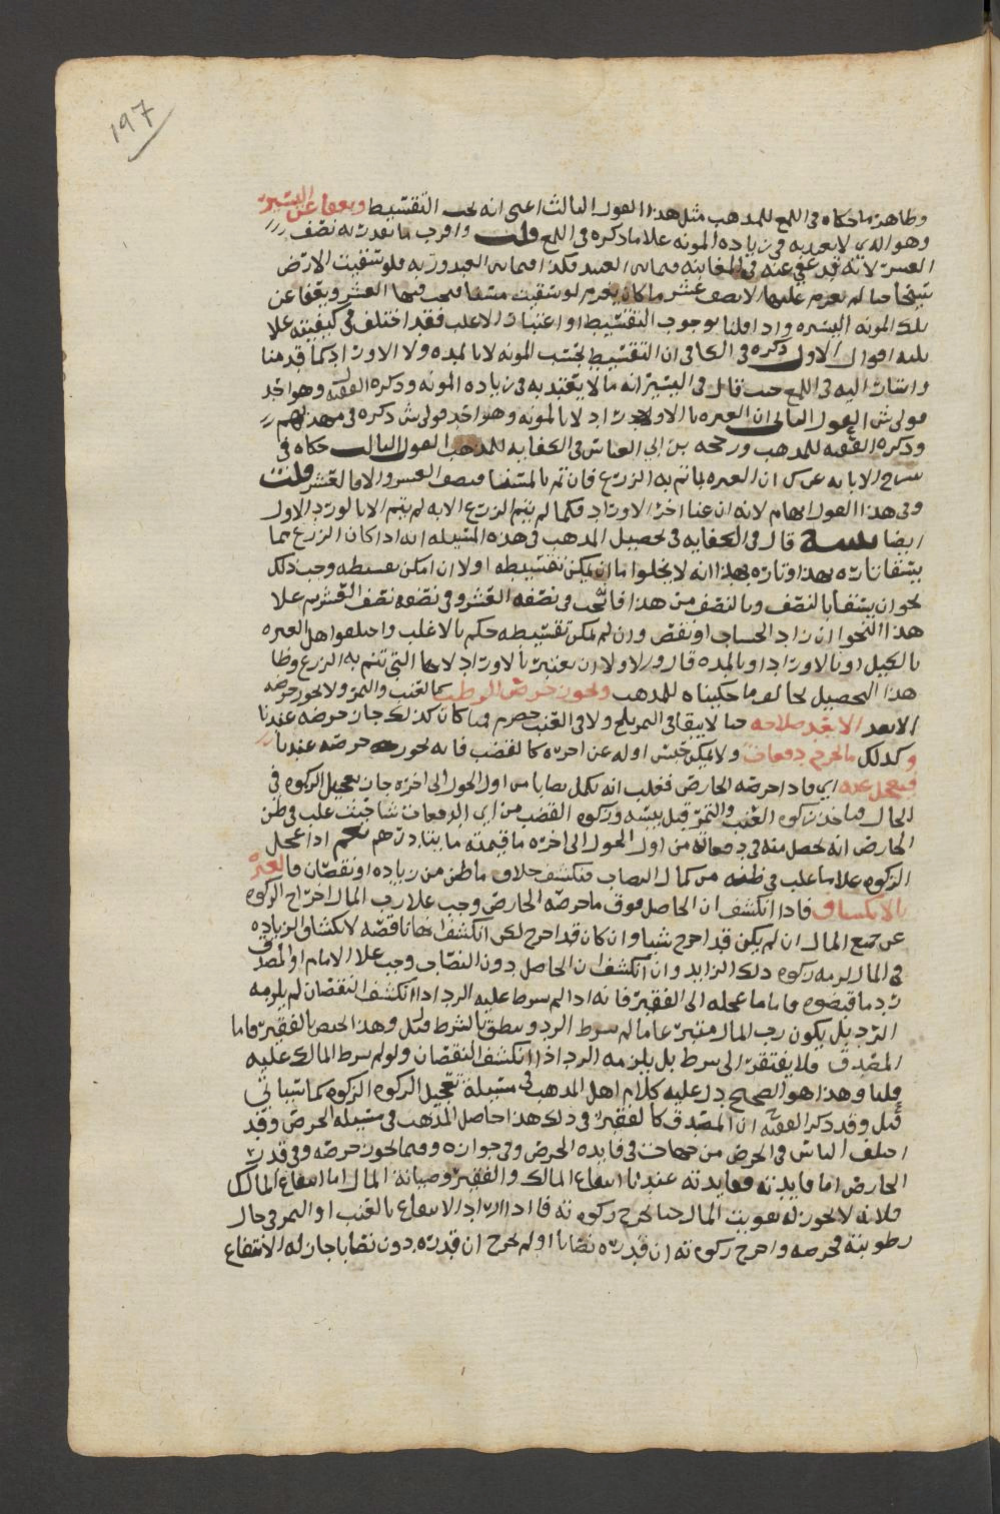 ١٩٧
وظاهر ما حكاه في اللمع للمذهب مثل هذا القول الثالث اعني انه يجب التقسيط ويعفا عن اليسير
وهو الذي لا يعتد به في زيادة المونه علا ما ذكره في اللمع قلت واقرب ما يقدر به نصف
العشر لانه قد عفي عنه في المعاينه فيما بين العبد فكذا فيما بين العبد وربه فلو سقيت الارض
سيحا حتا لم يغرم عليها الا نصف عشر ما كان يغرم لو سقيت مسقا فيجب فيها العشر ويعفا عن
تلك المونه اليسيره واذا قلنا بوجوب التقسيط او اعتبار الاغلب فقد اختلف في كيفيته علا
ثلثه اقوال الاول ذكره في الكافي ان التقسيط بحسب المونه لا بالمده ولا الاوراد كما قدمنا
واشار اليه في اللمع حيث قال في اليسير انه ما لا يعتد به في زياده المونه وذكره الفقيه وهو احد
قولي ش القول الثاني ان العبره بالاوراد لا بالمونه وهو احد قولي ش ذكره في مهذبهم
وذكره الفقيه للمذهب ورجحه بن ابي العباس في الكفايه للمذهب القول الثالث حكاه في
شرح الابانه عن ش ان العبره بما تم به الزرع فان تم بالمسقا فنصف العشر والا فالعشر قلت
وفي هذا القول ابهام لانه ان عنا اخر الاوراد فكما لم يتم الزرع الا به لم يتم الا بالورد الاول
ايضا تنبيه قال في الكفايه في تحصيل المذهب في هذه المسيله انه اذا كان الزرع مما
يسقا تاره بهذا وتاره بهذا انه لا يخلوا اما ان يمكن تقسيطه اولا ان امكن تقسيطه وجب ذلك
نحو ان يسقا بالنصف وبالنصف من هذا فانه يجب في نصفه العشر وفي نصفه نصف العشر ثم علا
هذا النحو ان زاد الحساب او نقص وان لم يمكن تقسيطه حكم بالاغلب واختلفوا هل العبره
بالكيل او بالاوراد او بالمده قال والاولا ان يعتبر بالاوراد لانها التي تتم به الزرع وظا
هذا التحصيل يخالف ما حكيناه للمذهب ويجوز خرص الرطب كالعنب والتمر ولا يجوز خرصه
الا بعد الا بعد صلاحه حتا لا يبقا في التمر بلح ولا في العنب حصرم فما كان كذلك جاز خرصه عندنا
وكذلك ما يخرج دفعات ولا يمكن حبس اوله عن اخره كالقضب فانه يجوز خرصه عندنا
فيعجل عنه اي فاذا خرصه الخارص فغلب انه يكمل نصابا من اول الحول الى اخره جاز تعجيل الزكوه في
الحال فياخذ زكوه العنب والتمر قبل يبسه وزكوه القضب من اي الدفعات شا حيث غلب في ظن
الخارص انه يحصل منه في دفعاته من اول الحول الى اخره ما قيمته مايتا درهم نعم اذا عجل
الزكوه علا ما غلب في ظنه من كمال النصاب فنكشف خلاف ما ظن من زياده او نقصان فالعبره
بالانكشاف فاذا انكشف ان الحاصل فوق ما خرصه الخارص وجب علا رب المال اخراج الزكوه
عن جميع المال ان لم يكن قد اخرج شيا وان كان قد اخرج لكن انكشف انها ناقصه لانكشاف الزياده
في المال لزمه زكوه ذلك الزايد وان انكشف ان الحاصل دون النصاب وجب علا الامام او المصدق
رد ما قبضوه فاما ما عجله الى الفقير فانه اذا لم يشرط عليه الرد اذا انكشف النقصان لم يلزمه
الرد بل يكون رب المال متبرعا ما لم يشرط الرد وينطق بالشرط قيل وهذا يختص بالفقير فاما
المصدق فلا يفتقر الى شرط بل يلزمه الرد اذا انكشف النقصان ولو لم يشرط المالك عليه
قلنا وهذا هو الصحيح دل عليه كلام اهل المذهب في مسيلة تعجيل الزكوه كما سياتي
قيل وقد ذكر الفقيه ان المصدق كالفقير في ذلك هذا حاصل المذهب في مسيلة الخرص وقد
اختلف الناس في الخرص من جهات في فايدة الخرص وفي جوازه وفيما يجوز خرصه وفي قدر
الخارص اما فايدته ففايدته عندنا انتفاع المالك والفقير وصيانة المال اما انتفاع المالك
فلانه لا يجوز له تفويت المال حتا يخرج زكوته فاذا اراد الانتفاع بالعنب او التمر في حال
رطوبته خرصه واخرج زكوته ان قدره نصابا او لم يخرج ان قدره دون نصابا جاز له الانتفاع